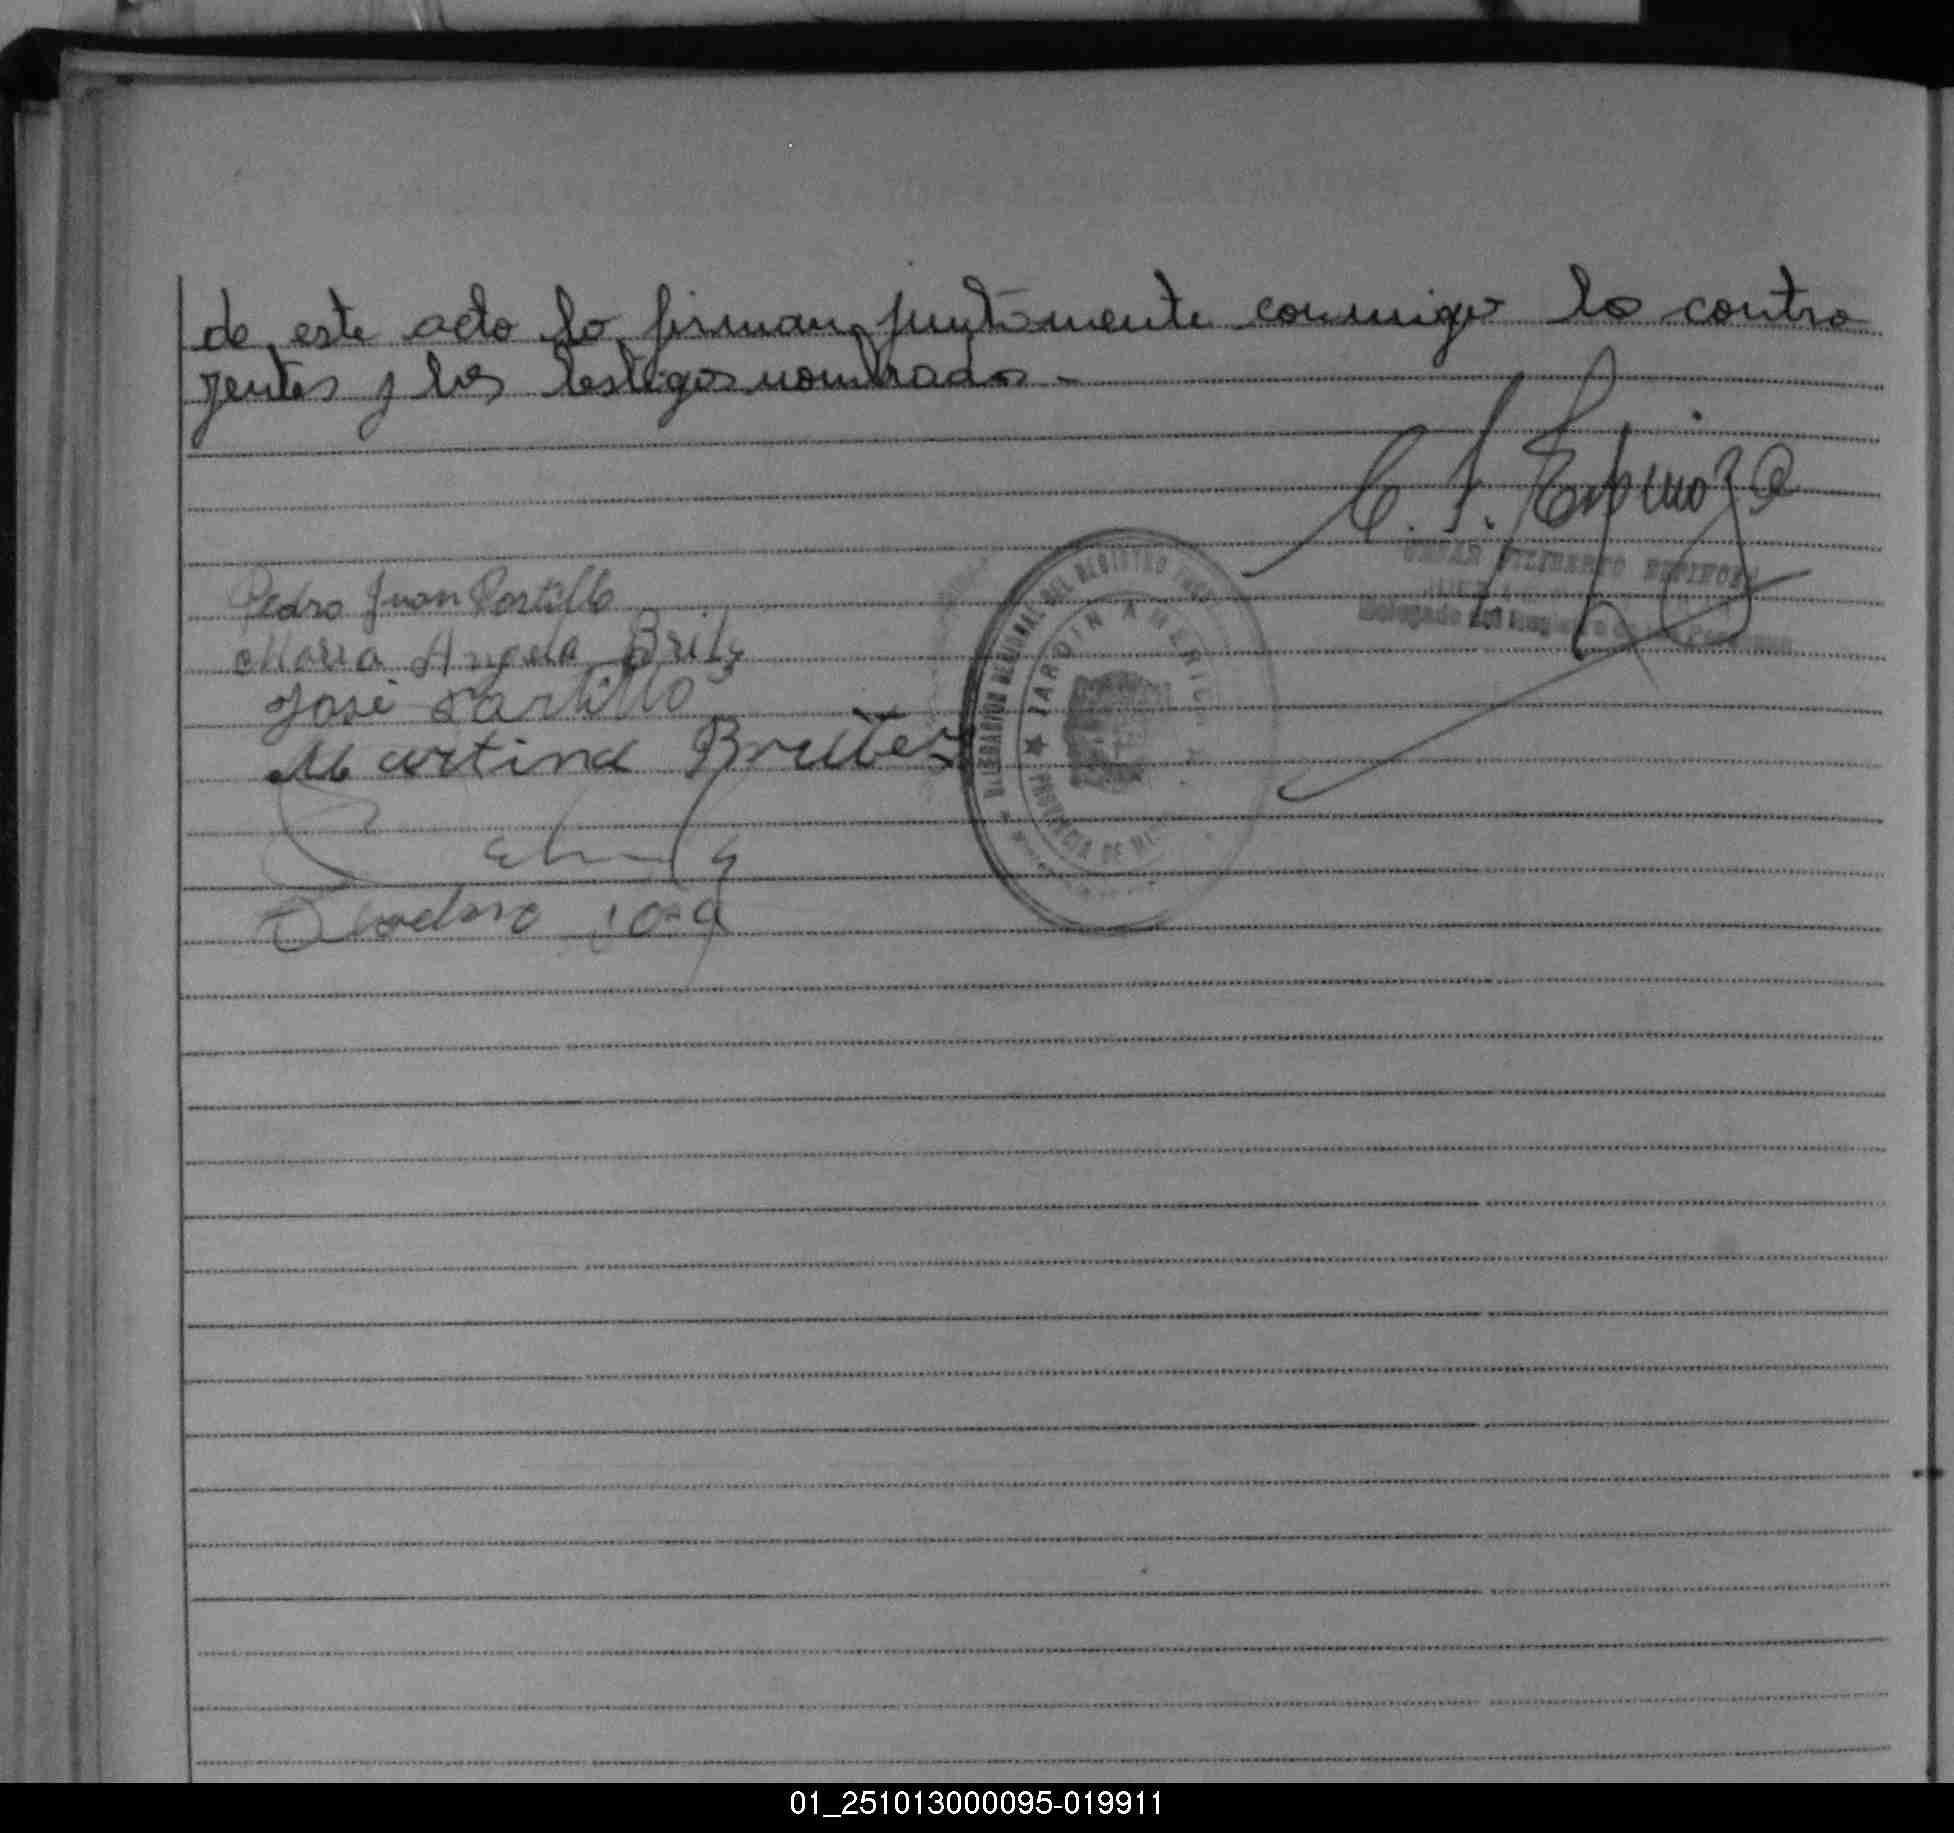 de este acto lo firman juntamente conmigo los contra
yentes y los testigos nombrados.-
C. F. Espinoza
ESPINOZA
Delegado del Registro de las Personas
Pedro Juan Portillo
Maria Angela Britz
José Portillo
Martina Bruitez
DELEGACION REGIONAL DEL REGISTRO
JARDIN AMERICA
PROVINCIA DE
01_251013000095-019911